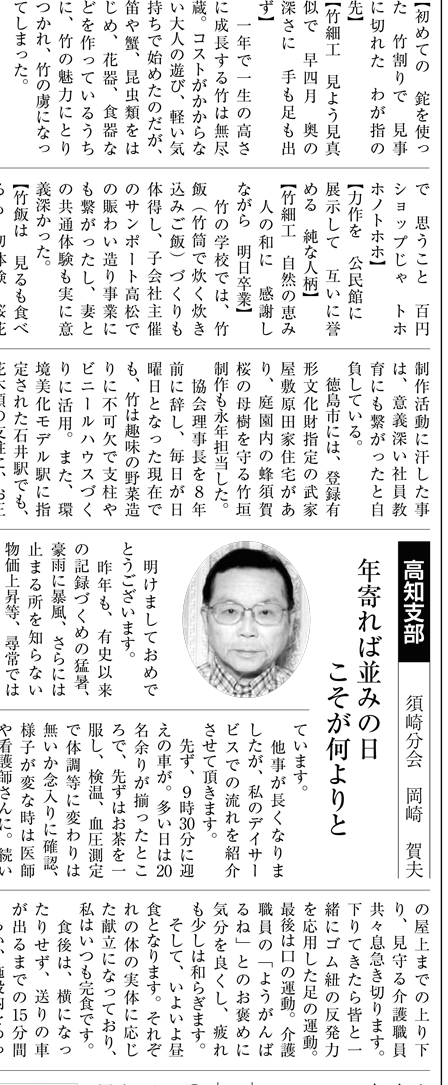 【初めての　鉈を使っ
た　竹割りで　見事
に切れた　わが指の
先】
【竹細工　見よう見真
似で　早四月　奥の
深さに　手も足も出
ず】
　一年で一生の高さ
に成長する竹は無尽
蔵。コストがかからな
い大人の遊び、軽い気
持ちで始めたのだが、
笛や蟹、昆虫類をは
じめ、花器、食器な
どを作っているうち
に、竹の魅力にとり
つかれ、竹の虜になっ
てしまった。
で　思うこと　百円
ショップじゃ　トホ
ホノトホホ】
【力作を　公民館に
展示して　互いに誉
める　純な人柄】
【竹細工　自然の恵み
　人の和に　感謝し
ながら　明日卒業】
　竹の学校では、竹
飯（竹筒で炊く炊き
込みご飯）づくりも
体得し、子会社主催
のサンポート高松で
の賑わい造り事業に
も繋がったし、妻と
の共通体験も実に意
義深かった。
【竹飯は　見るも食べ
制作活動に汗した事
は、意義深い社員教
育にも繋がったと自
負している。
　徳島市には、登録有
形文化財指定の武家
屋敷原田家住宅があ
り、庭園内の蜂須賀
桜の母樹を守る竹垣
制作も永年担当した。
　協会理事長を８年
前に辞し、毎日が日
曜日となった現在で
も、竹は趣味の野菜造
りに不可欠で支柱や
ビニールハウスづく
りに活用。また、環
境美化モデル駅に指
定された石井駅でも、
高知支部
須崎分会　岡崎　賀夫
年寄れば並みの日
こそが何よりと
　明けましておめで
とうございます。
　昨年も、有史以来
の記録づくめの猛暑、
豪雨に暴風、さらには
止まる所を知らない
物価上昇等、尋常では
ています。
　他事が長くなりま
したが、私のデイサー
ビスでの流れを紹介
させて頂きます。
　先ず、９時30分に迎
えの車が。多い日は20
名余りが揃ったとこ
ろで、先ずはお茶を一
服し、検温、血圧測定
で体調等に変わりは
無いか念入りに確認、
様子が変な時は医師
や看護師さんに。続い
の屋上までの上り下
り、見守る介護職員
共々息急き切ります。
下りてきたら皆と一
緒にゴム紐の反発力
を応用した足の運動。
最後は口の運動。介護
職員の「ようがんば
るね」とのお褒めに
気分を良くし、疲れ
も少しは和らぎます。
　そして、いよいよ昼
食となります。それぞ
れの体の実体に応じ
た献立になっており、
私はいつも完食です。
　食後は、横になっ
たりせず、送りの車
が出るまでの15分間